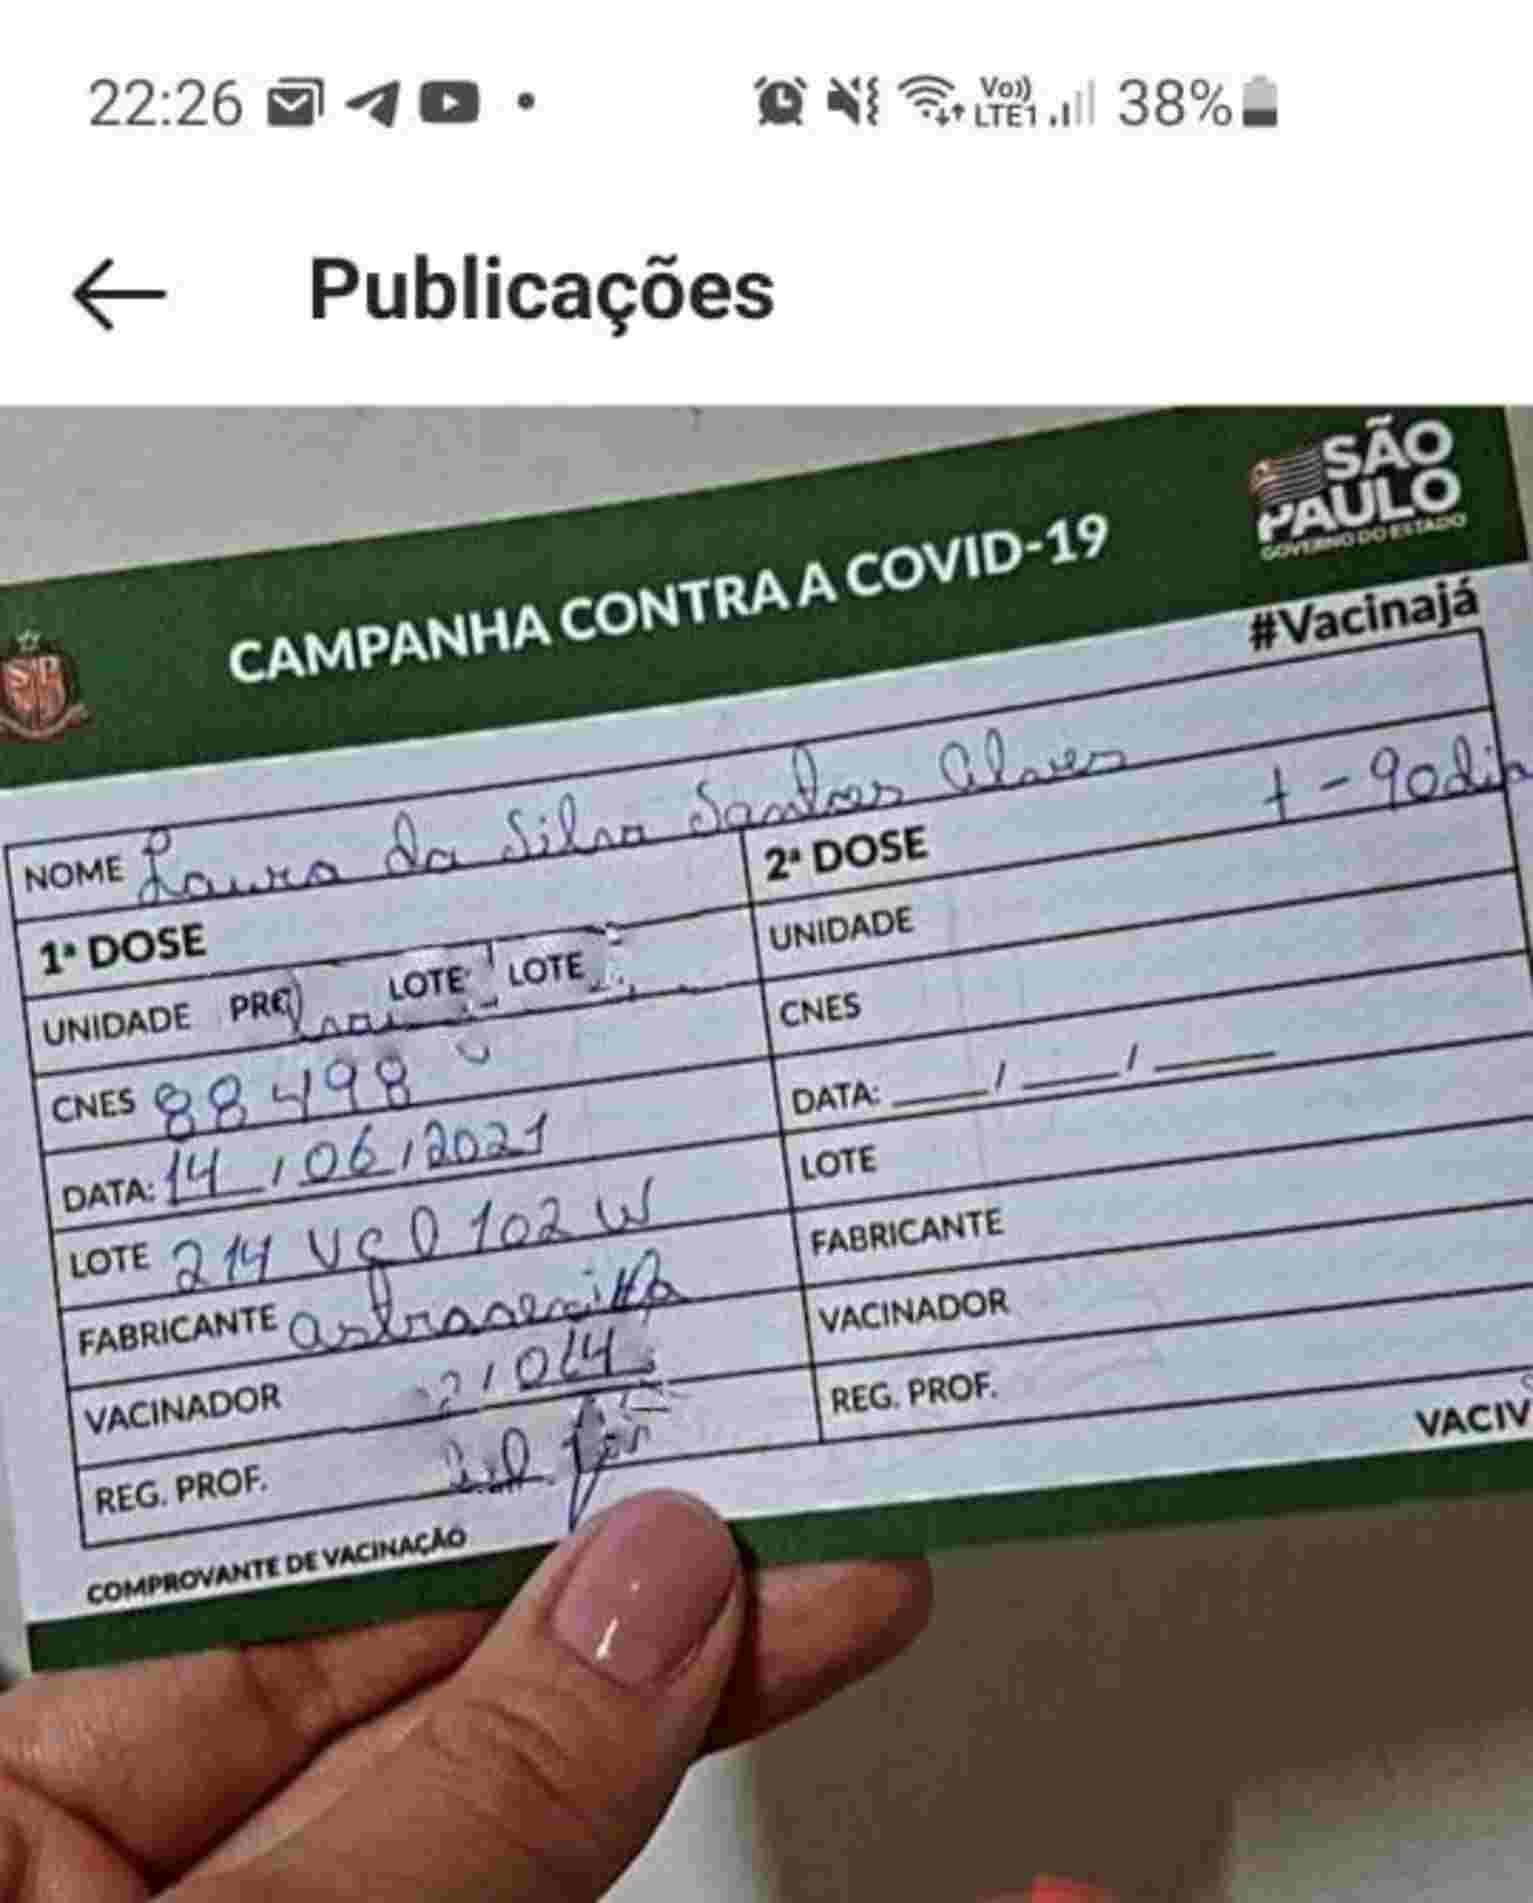 22:26 Vo)) LTE1 38%
Publicações
SÃO PAULO
GOVERNO DO ESTADO
CAMPANHA CONTRA A COVID-19
#Vacinajá
NOME Laura da Silva Santos Alves
1ª DOSE
UNIDADE PRE LOTE LOTE
CNES 88498
DATA: 14/06/2021
LOTE 214 VCD 102 W
FABRICANTE
VACINADOR
REG. PROF.
COMPROVANTE DE VACINAÇÃO
2ª DOSE + - 90 dia
UNIDADE
CNES
DATA: ____/____/____
LOTE
FABRICANTE
VACINADOR
REG. PROF.
VACIV